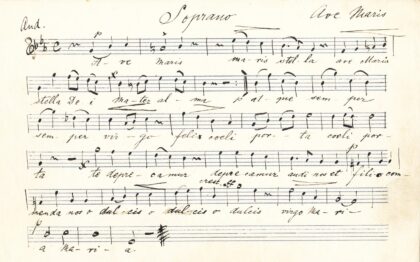 And. Soprano Ave Maris
p
A - ve maris ma - ris stel la ave Maris
stella De i ma - ter al - ma p at - que sem per
sem - per vir - go felix coeli por - ta coeli por -
ta te depre - camur deprecamur audi nos et filio com
cresc.
menda nos o dulcis o dulcis o dulcis virgo Ma - ri -
p
a Ma - ri - a.